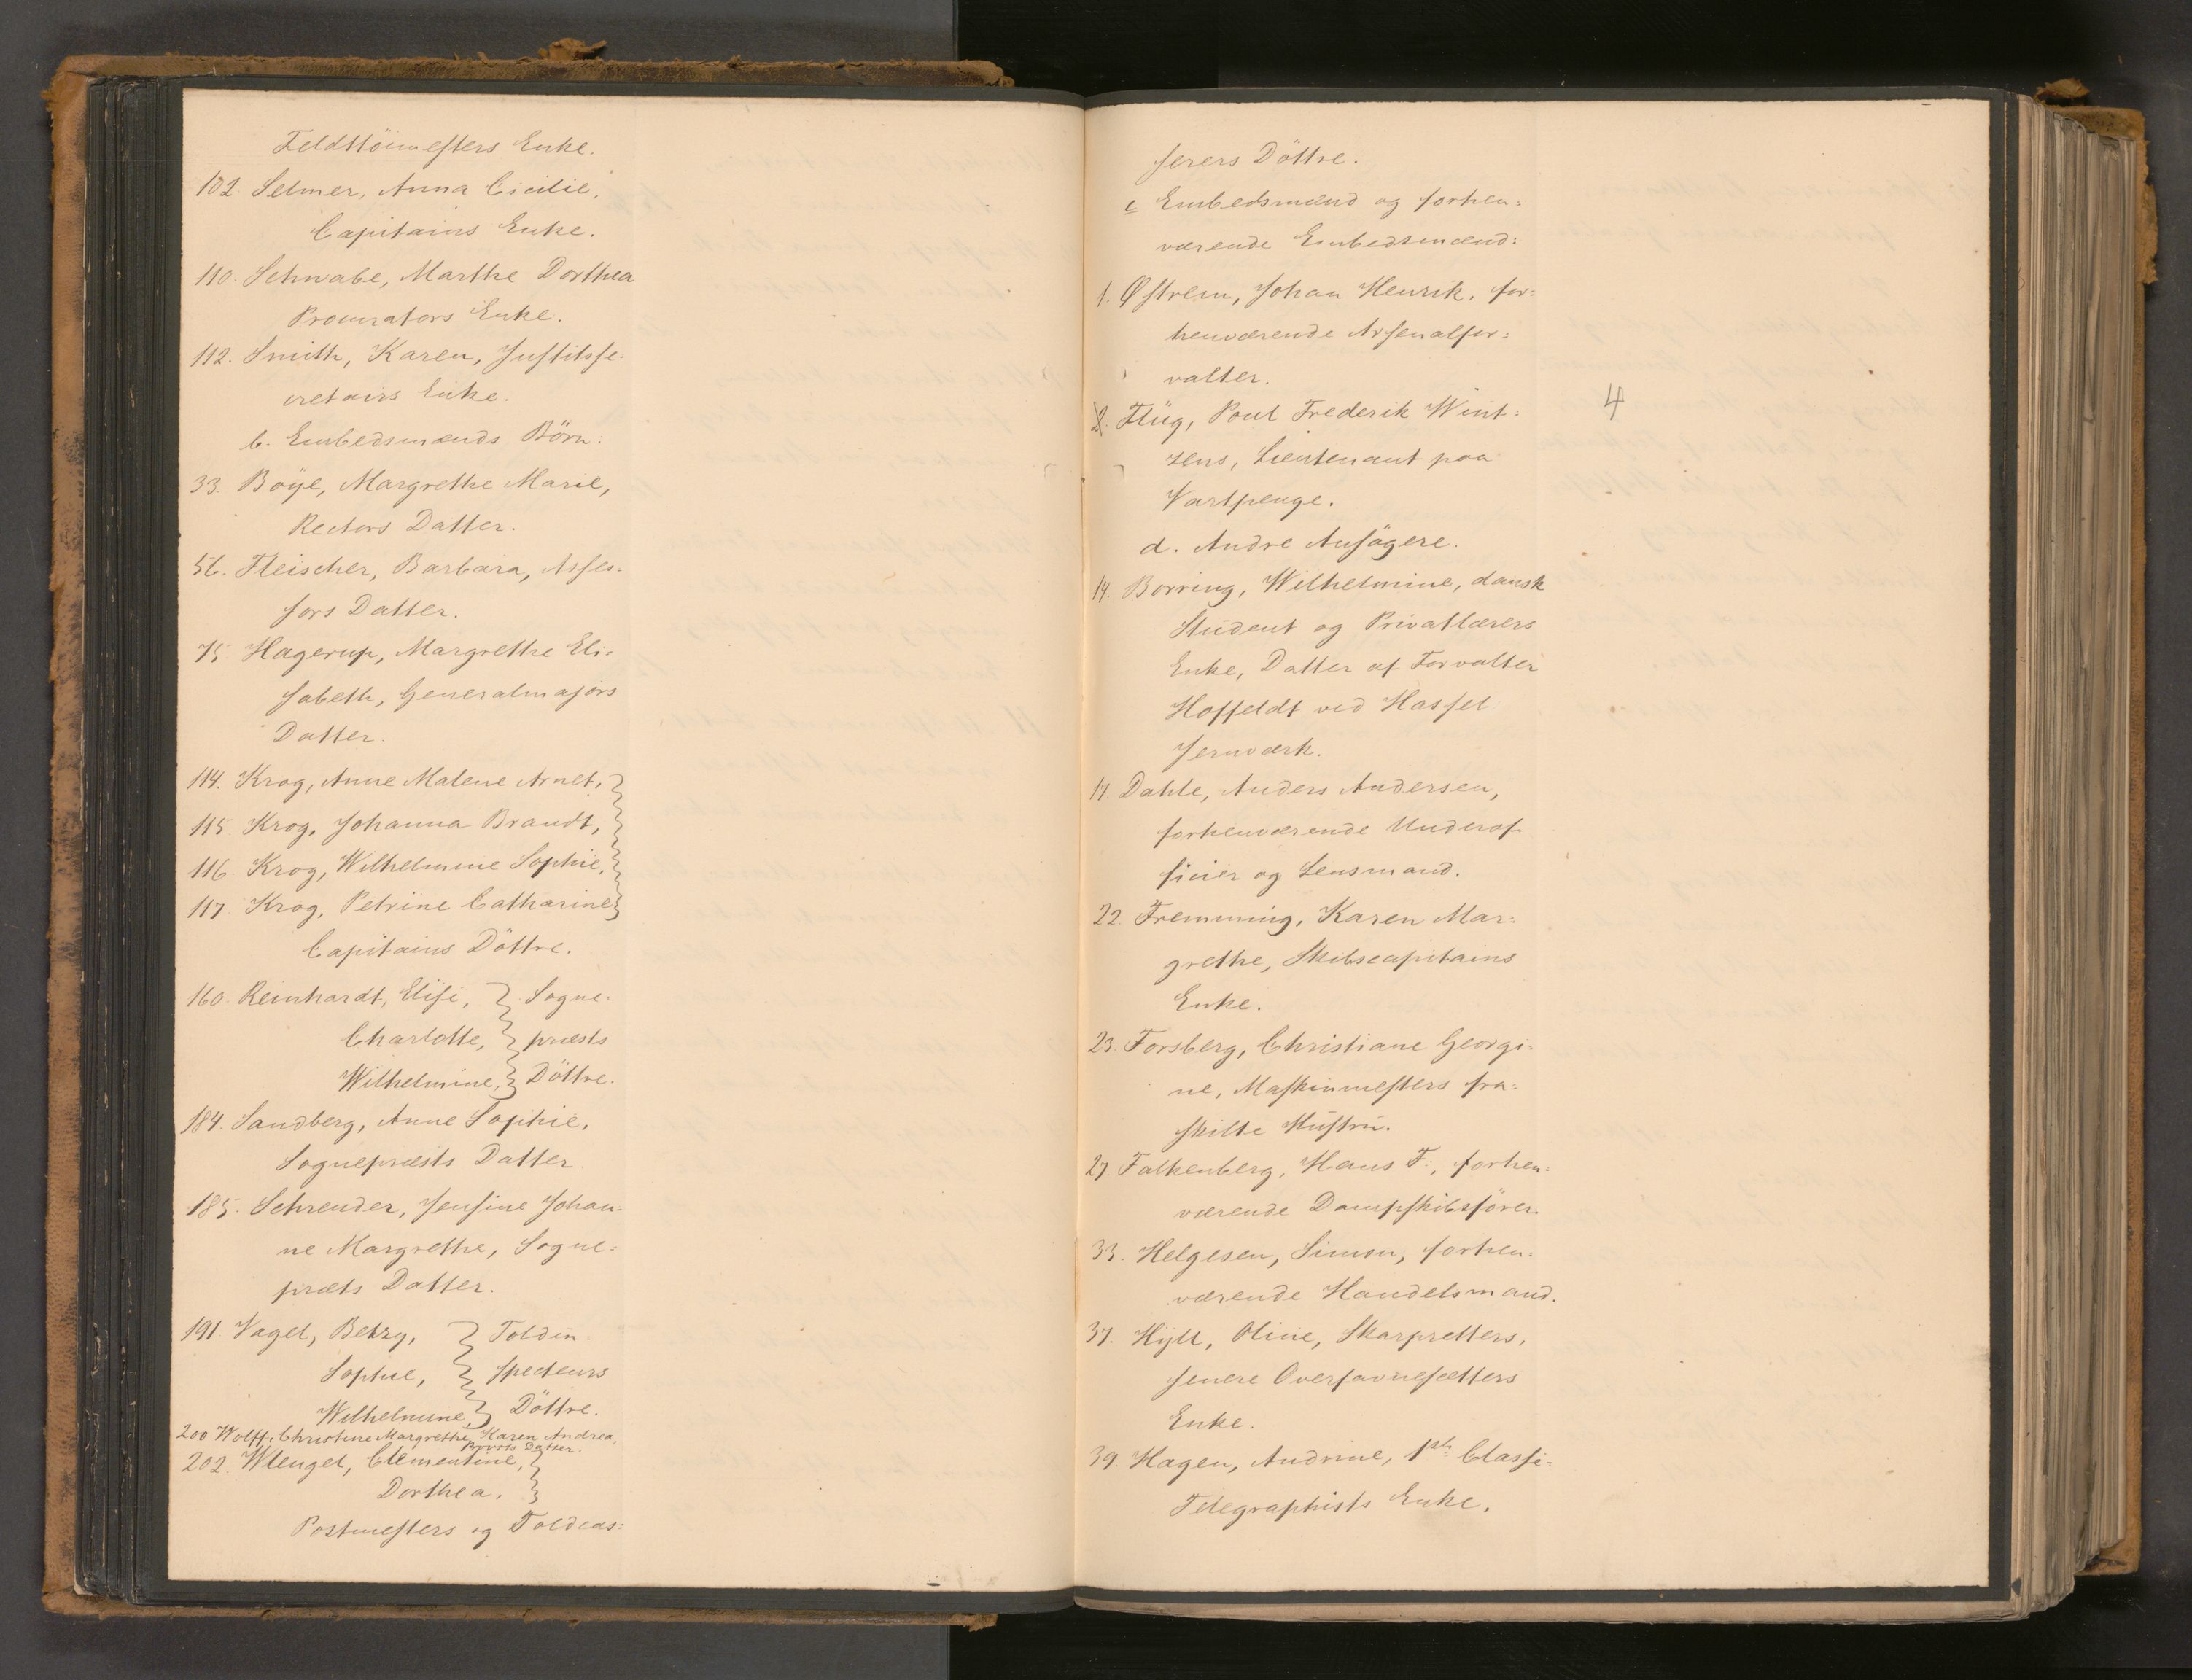 Feldttöimesters Enke.
102. Selmer, Anna Cicilie,
Capitains Enke.
110. Schwabe, Marthe Dorthea
Procurators Enke.
112. Smith, Karen, Justitsse-
cretairs Enke.
b. Embedsmænds Börn:
33. Böÿe, Margrethe Marie,
Rectors Datter.
56. Fleischer, Barbara, Asses-
sors Datter.
75. Hagerup, Margrethe Eli-
sabeth, Generalmajors
Datter.
114. Krog, Anne Malene Arnet,
115. Krog, Johanna Brandt,
116 Krog, Wilhelmine Sophie,
117. Krog, Petrine Catharine
Capitains Döttre.
160. Reinhardt, Elise, Sogne-
Charlotte, præsts
Wilhelmine, Döttre.
184. Sandberg, Anne Sophie,
Sognepræsts Datter.
185. Schreuder, Jensine Johan-
ne Margrethe, Sogne-
præts Datter.
191 Vagel, Betzy, Toldin-
Sophie, specteurs
Wilhelmine, Döttre.
200 Wolff, Christine Margrethe Karen Andrea,
Provsts Datter.
202. Wlengel, Clementine,
Dorthea,
Postmesters og Toldcas:
serers Döttre.
c Embedsmænd og forhen:
værende Embedsmænd:
1. Østrem, Johan Henrik, for:
henværende Arsenalfor:
valter.
2. Flüg, Poul Frederik Wint: 4
zens, Lieutenant paa
Vartpenge.
d. Andre Ansögere.
14. Borring, Wilhelmine, dansk
Student og Privatlærers
Enke, Datter af Forvalter
Hoffeldt ved Hassel
Jernværk.
17. Dahle, Anders Andersen,
forhenværende Underof-
ficier og Lensmand.
22. Fremming, Karen Mar:
grethe, Skibscapitains
Enke.
23. Forsberg, Christiane Georgi-
ne, Maskinmesters fra:
skilte Hustru.
27 Falkenberg, Hans F., forhen-
værende Dampskibsförer.
33. Helgesen, Simon, forhen-
værende Handelsmand.
37. Hÿll, Oline, Skarpretters,
senere Overfavnesætters
Enke.
39. Hagen, Andrine, 1ste Classe-
Telegraphists Enke.